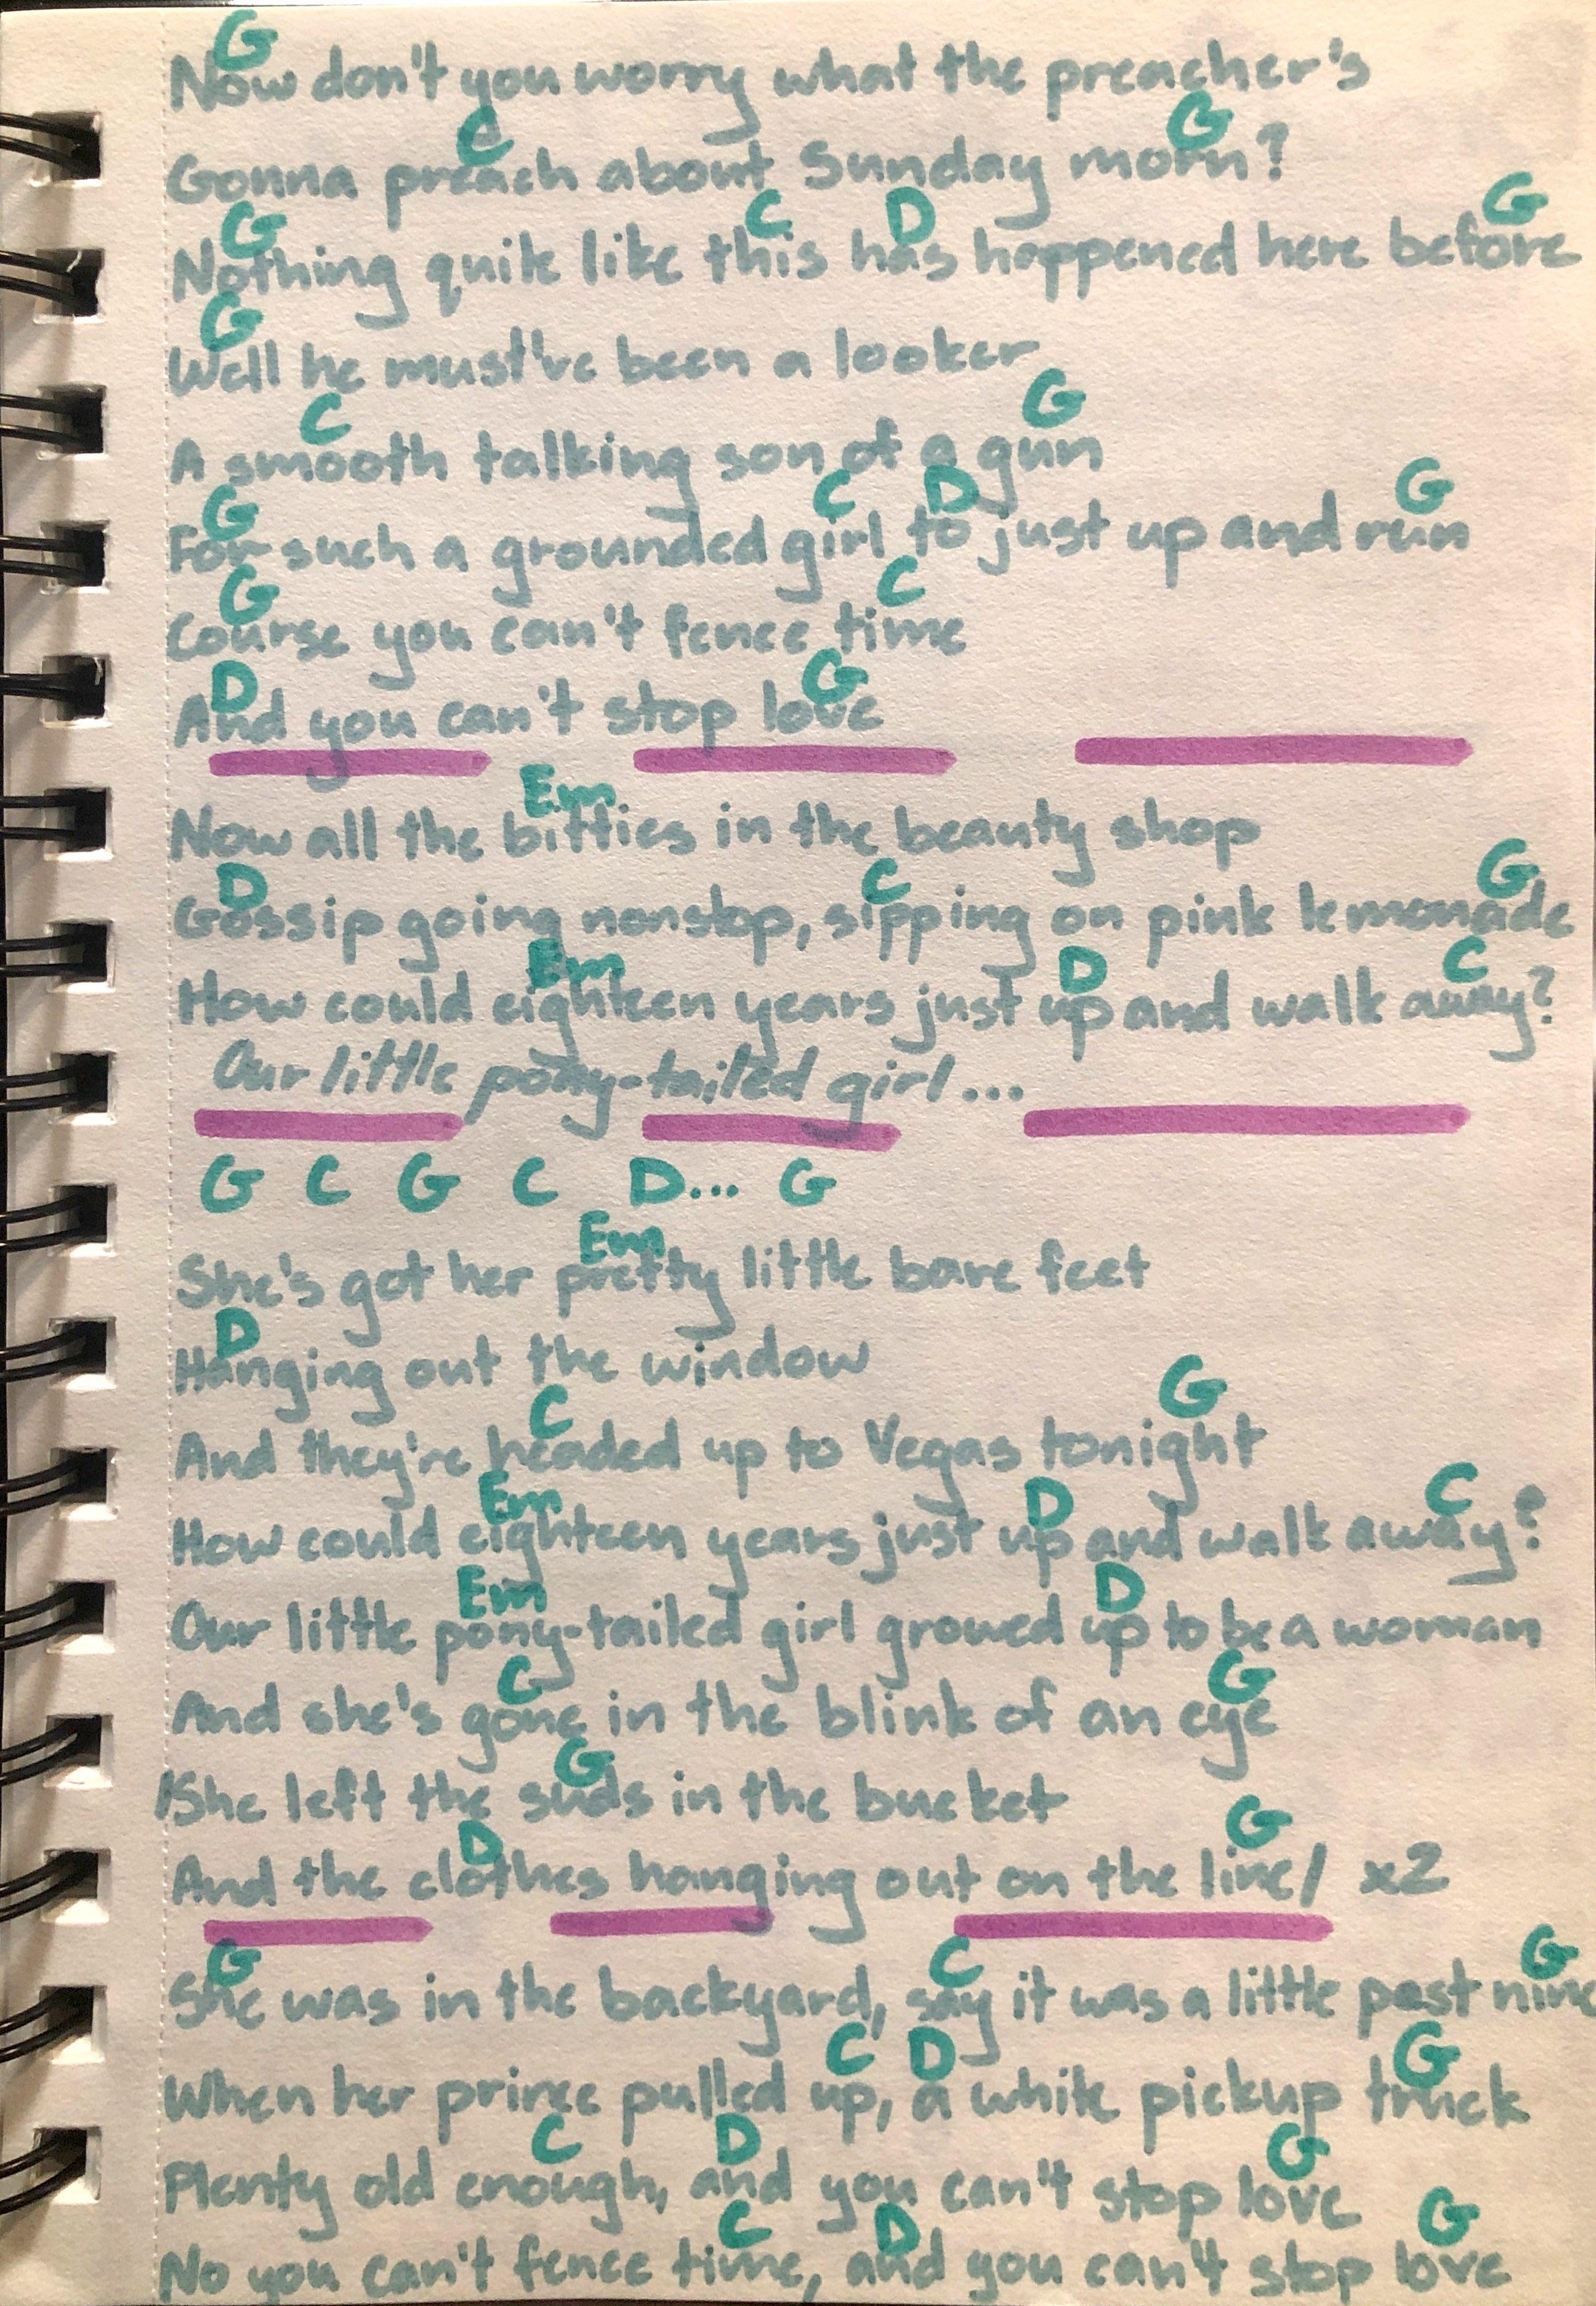 G
Now don't you worry what the preacher's
C G
Gonna preach about Sunday morn?
G C D G
Nothing quite like this has happened here before
G
Well he must've been a looker
C G
A smooth talking son of a gun
G C D G
For such a grounded girl to just up and run
G C
Course you can't fence time
D G
And you can't stop love
Em
Now all the bitties in the beauty shop
D C G
Gossip going nonstop, sipping on pink lemonade
Em D C
How could eighteen years just up and walk away?
Our little pony-tailed girl...
G C G C D... G
Em
She's got her pretty little bare feet
D
Hanging out the window
C G
And they're headed up to Vegas tonight
Em D C
How could eighteen years just up and walk away?
Em D
Our little pony-tailed girl growed up to be a woman
C G
And she's gone in the blink of an eye
G
/She left the suds in the bucket
D G
And the clothes hanging out on the line/ x2
G C G
She was in the backyard, say it was a little past nine
C D G
When her prince pulled up, a white pickup truck
C D G
Plenty old enough, and you can't stop love
C D G
No you can't fence time, and you can't stop love